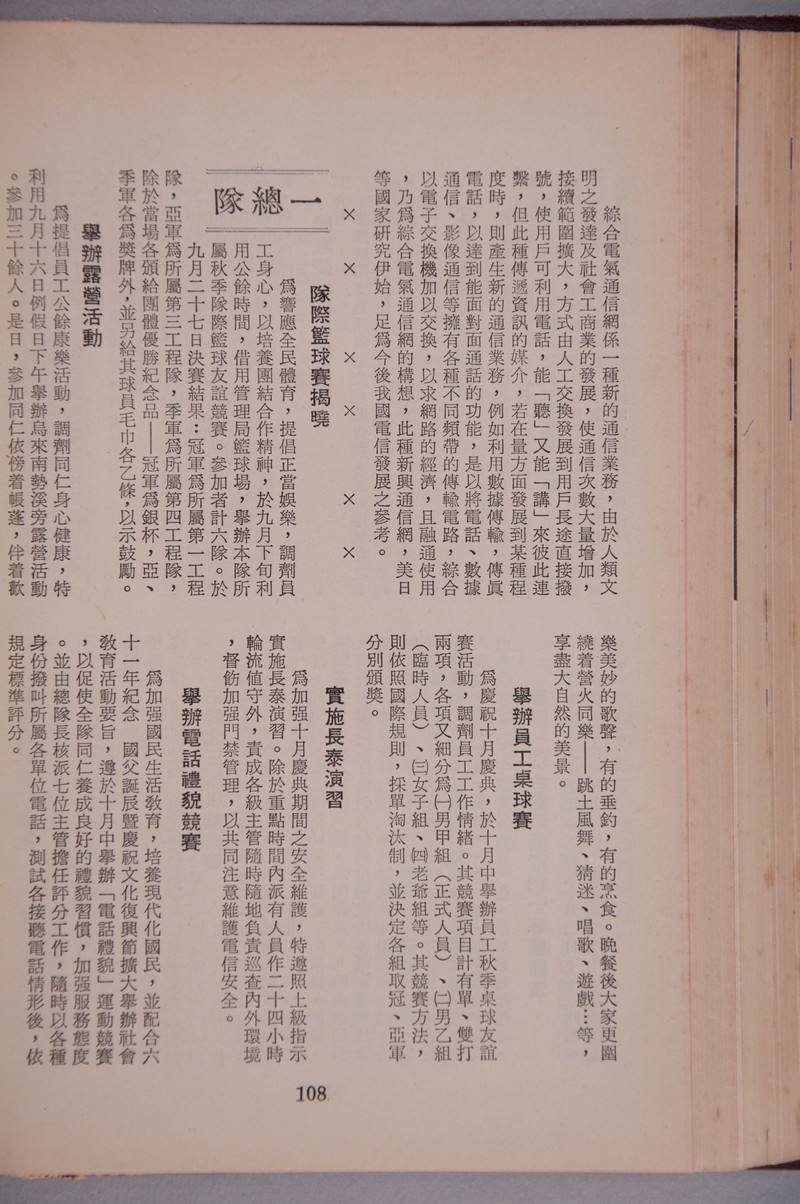 綜合電氣通信網係一種新的通信業務，由於人類文
明之發達及社會工商業的發展，使通信次數大量增加，
接續範圍擴大，方式由人工交換發展到用戶長途直接撥
號，使用戶可利用電話，能「聽」又能「講」來彼此連
繫，但此種傳遞資訊的媒介，若在量方面發展到某種程
度時，則產生新的通信業務，例如利用數據傳輸，傳眞
電話，以達到能面對面通話的功能，是以將電話、數據
通信、影像通信等擁有各種不同頻帶的傳輸電路，綜合
以電子交換機加以交換，以求網路的經濟，且融通使用
，乃爲綜合電氣通信網的構想，此種新興通信網，美日
等國家硏究伊始，足爲今後我國電信發展之參考。
×　×　×　×　×　×
一總隊
隊際籃球賽揭曉
爲響應全民體育，提倡正當娛樂，調劑員
工身心，以培養團結合作精神，於九月下旬利
用公餘時間，借用管理局籃球場，舉辦本隊所
屬秋季隊際籃球友誼競賽。參加者計六隊。於
九月二十七日決賽結果：冠軍爲所屬第一工程
隊，亞軍爲所屬第三工程隊，季軍爲所屬第四工程隊，
除於當場各頒給團體優勝紀念品——冠軍爲銀杯，亞、
季軍各爲獎牌外，並另給其球員毛巾各乙條，以示鼓勵。
舉辦露營活動
爲提倡員工公餘康樂活動，調劑同仁身心健康，特
利用九月十六日例假日下午舉辦烏來南勢溪旁露營活動
。參加三十餘人。是日，參加同仁依傍着帳蓬，伴着歡
樂美妙的歌聲，有的垂釣，有的烹食。晚餐後大家更圍
繞着營火同樂——跳土風舞、猜迷、唱歌、遊戲…等，
享盡大自然的美景。
舉辦員工桌球賽
爲慶祝十月慶典，於十月中舉辦員工秋季桌球友誼
賽活動，調劑員工工作情緒。其競賽項目計有單、雙打
兩項，各項又細分爲㈠男甲組（正式人員）、㈡男乙組
（臨時人員）、㈢女子組、㈣老爺組等。其競賽方法，
則依照國際規則，採單淘汰制，並決定各組取冠、亞軍
分別頒獎。
實施長泰演習
爲加强十月慶典期間之安全維護，特遵照上級指示
實施長泰演習。除於重點時間內派有人員作二十四小時
輪流值守外，責成各級主管隨時隨地負責巡查內外環境
，督飭加强門禁管理，以共同注意維護電信安全。
舉辦電話禮貌競賽
爲加强國民生活敎育，培養現代化國民，並配合六
十一年紀念　國父誕辰暨慶祝文化復興節擴大舉辦社會
敎育活動要旨，遵於十月中舉辦「電話禮貌」運動競賽
，以促使全隊同仁養成良好的禮貌習慣，加强服務態度
。並由總隊長核派七位主管擔任評分工作，隨時以各種
身份撥叫所屬各單位電話，測試各接聽電話情形後，依
規定標準評分。
108